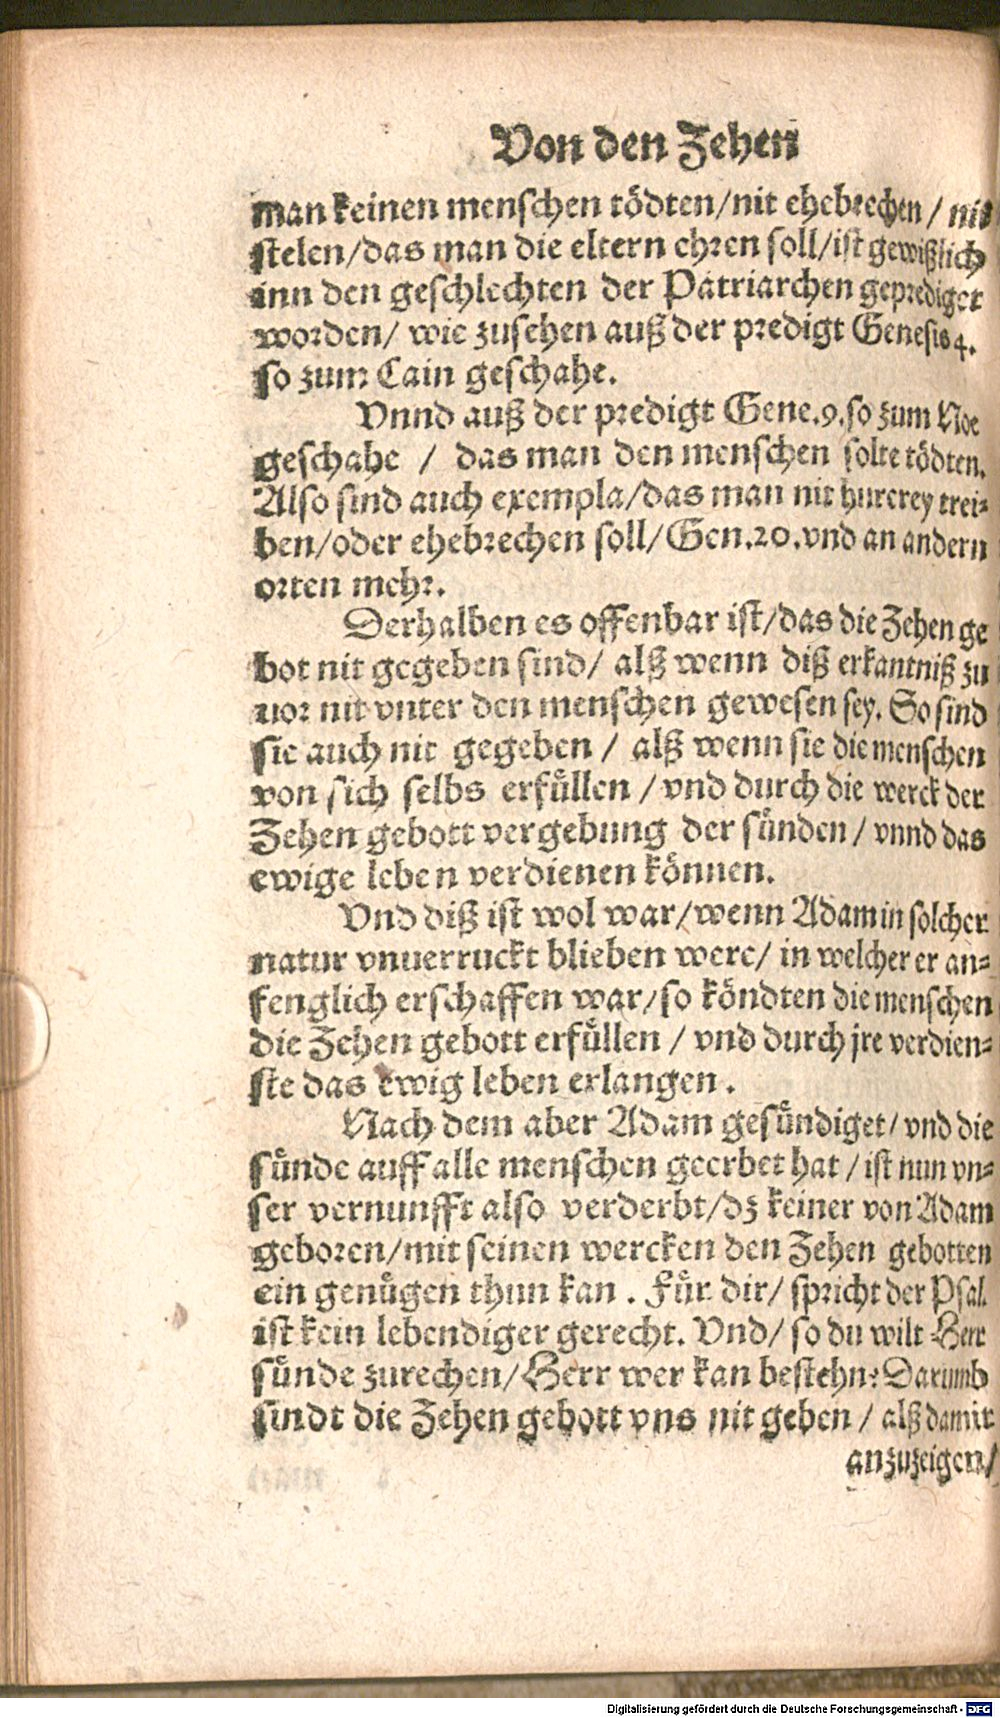 Von den Zehen
man keinen menschen tödten/nit ehebrechen / nit
stelen/das man die eltern ehren soll/ist gewißlich
inn den geschlechten der Patriarchen geprediget
worden/ wie zusehen auß der predigt Genesis 4.
so zum Cain geschahe.
Vnnd auß der predigt Gene.9.so zum Noe
geschahe / das man den menschen solte tödten.
Also sind auch exempla/das man nit hurerey trei-
ben/oder ehebrechen soll/Gen.20.vnd an andern
orten mehr.
Derhalben es offenbar ist/das die Zehen ge
bot nit gegeben sind/ alß wenn diß erkantniß zu
uor nit vnter den menschen gewesen sey. So sind
sie auch nit gegeben / alß wenn sie die menschen
von sich selbs erfüllen / vnd durch die werck der
Zehen gebott vergebung der sünden / vnnd das
ewige leben verdienen können.
Vnd diß ist wol war/wenn Adam in solcher
natur vnuerruckt blieben were/ in welcher er an-
fenglich erschaffen war/so köndten die menschen
die Zehen gebott erfüllen / vnd durch jre verdien-
ste das ewig leben erlangen.
Nach dem aber Adam gesündiget/ vnd die
sünde auff alle menschen geerbet hat / ist nun vn-
ser vernunfft also verderbt/dz keiner von Adam
geboren/mit seinen wercken den Zehen gebotten
ein genügen thun kan . Für dir/ spricht der Psal.
ist kein lebendiger gerecht. Vnd/ so du wilt Herr
sünde zurechen/Herr wer kan bestehn? Darumb
sindt die Zehen gebott vns nit geben / alß damit
anzuzeigen/
Digitalisierung gefördert durch die Deutsche Forschungsgemeinschaft - DFG